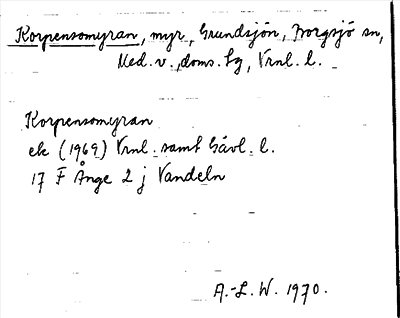 Korpensomyran, myr, Grundsjön, Borgsjö sn,
Med. v. doms. tg, Vrnl. l.
Korpensomyran
ek (1969) Vrnl. samt Gävl. l.
17 F Ånge 2 j Vandeln
A.-L. W. 1970.